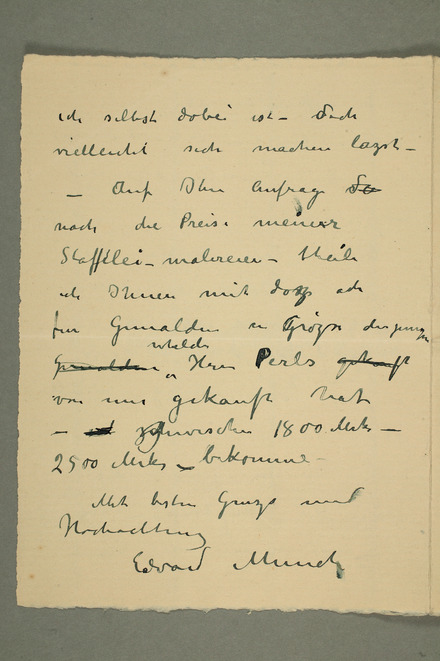 ich selbst dobei ist – doch
vielleicht sich machen lazst –
– Auf Ihre Anfrage
nach die Preise meiner
Staffelei – malereien – theile
ich Ihnen mit dozs ich
fur Gemalden in Grözse derjenigen
Gemalden welche Herr Perls gekauft
von mir gekauft hat
– zwischen 1800 Mrks –
2500 Mrks – bekomme –
Mit besten Gruzs und
Hochachtung
Edvard Munch